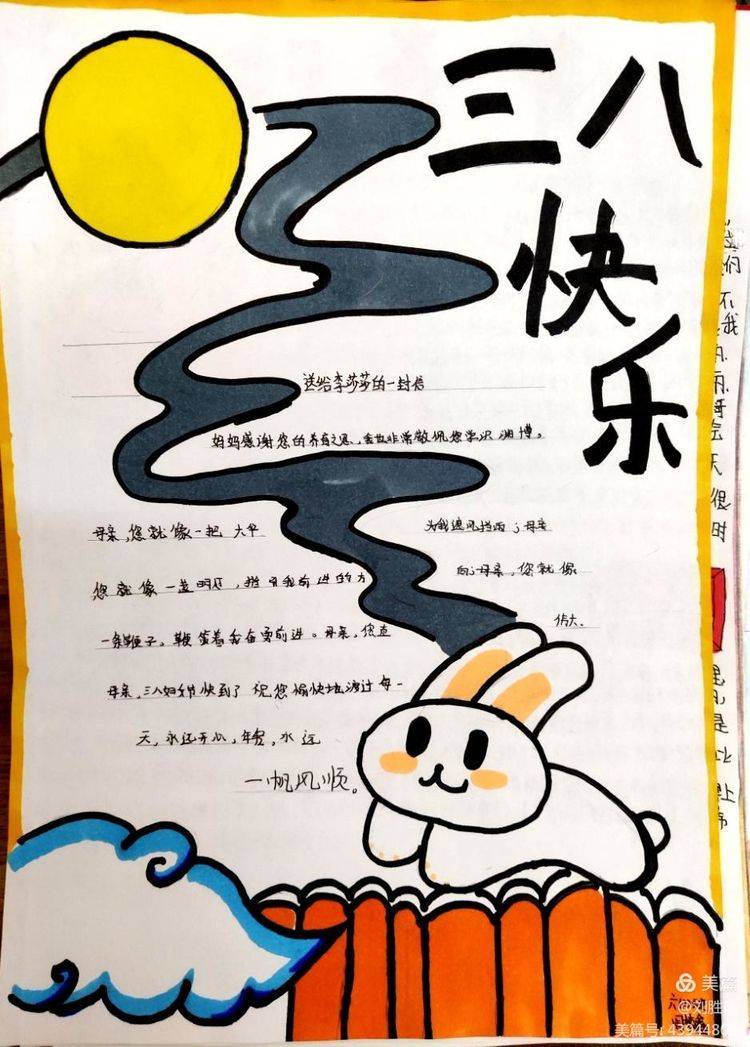 三八
快乐
送给李莎莎的一封信
妈妈感谢您的养育之恩，我也非常敬佩您学识渊博。
母亲，您就像一把大伞 为我遮风挡雨；母亲
您就像一盏明灯，指引我前进的方向；母亲，您就像
一条鞭子，鞭笞着我奋勇前进。母亲，您真伟大。
母亲，三八妇女节快到了 祝您愉快地渡过每一
天，永远开心，年轻，永远
一帆风顺。
美篇
@刘胜
美篇号:4394480